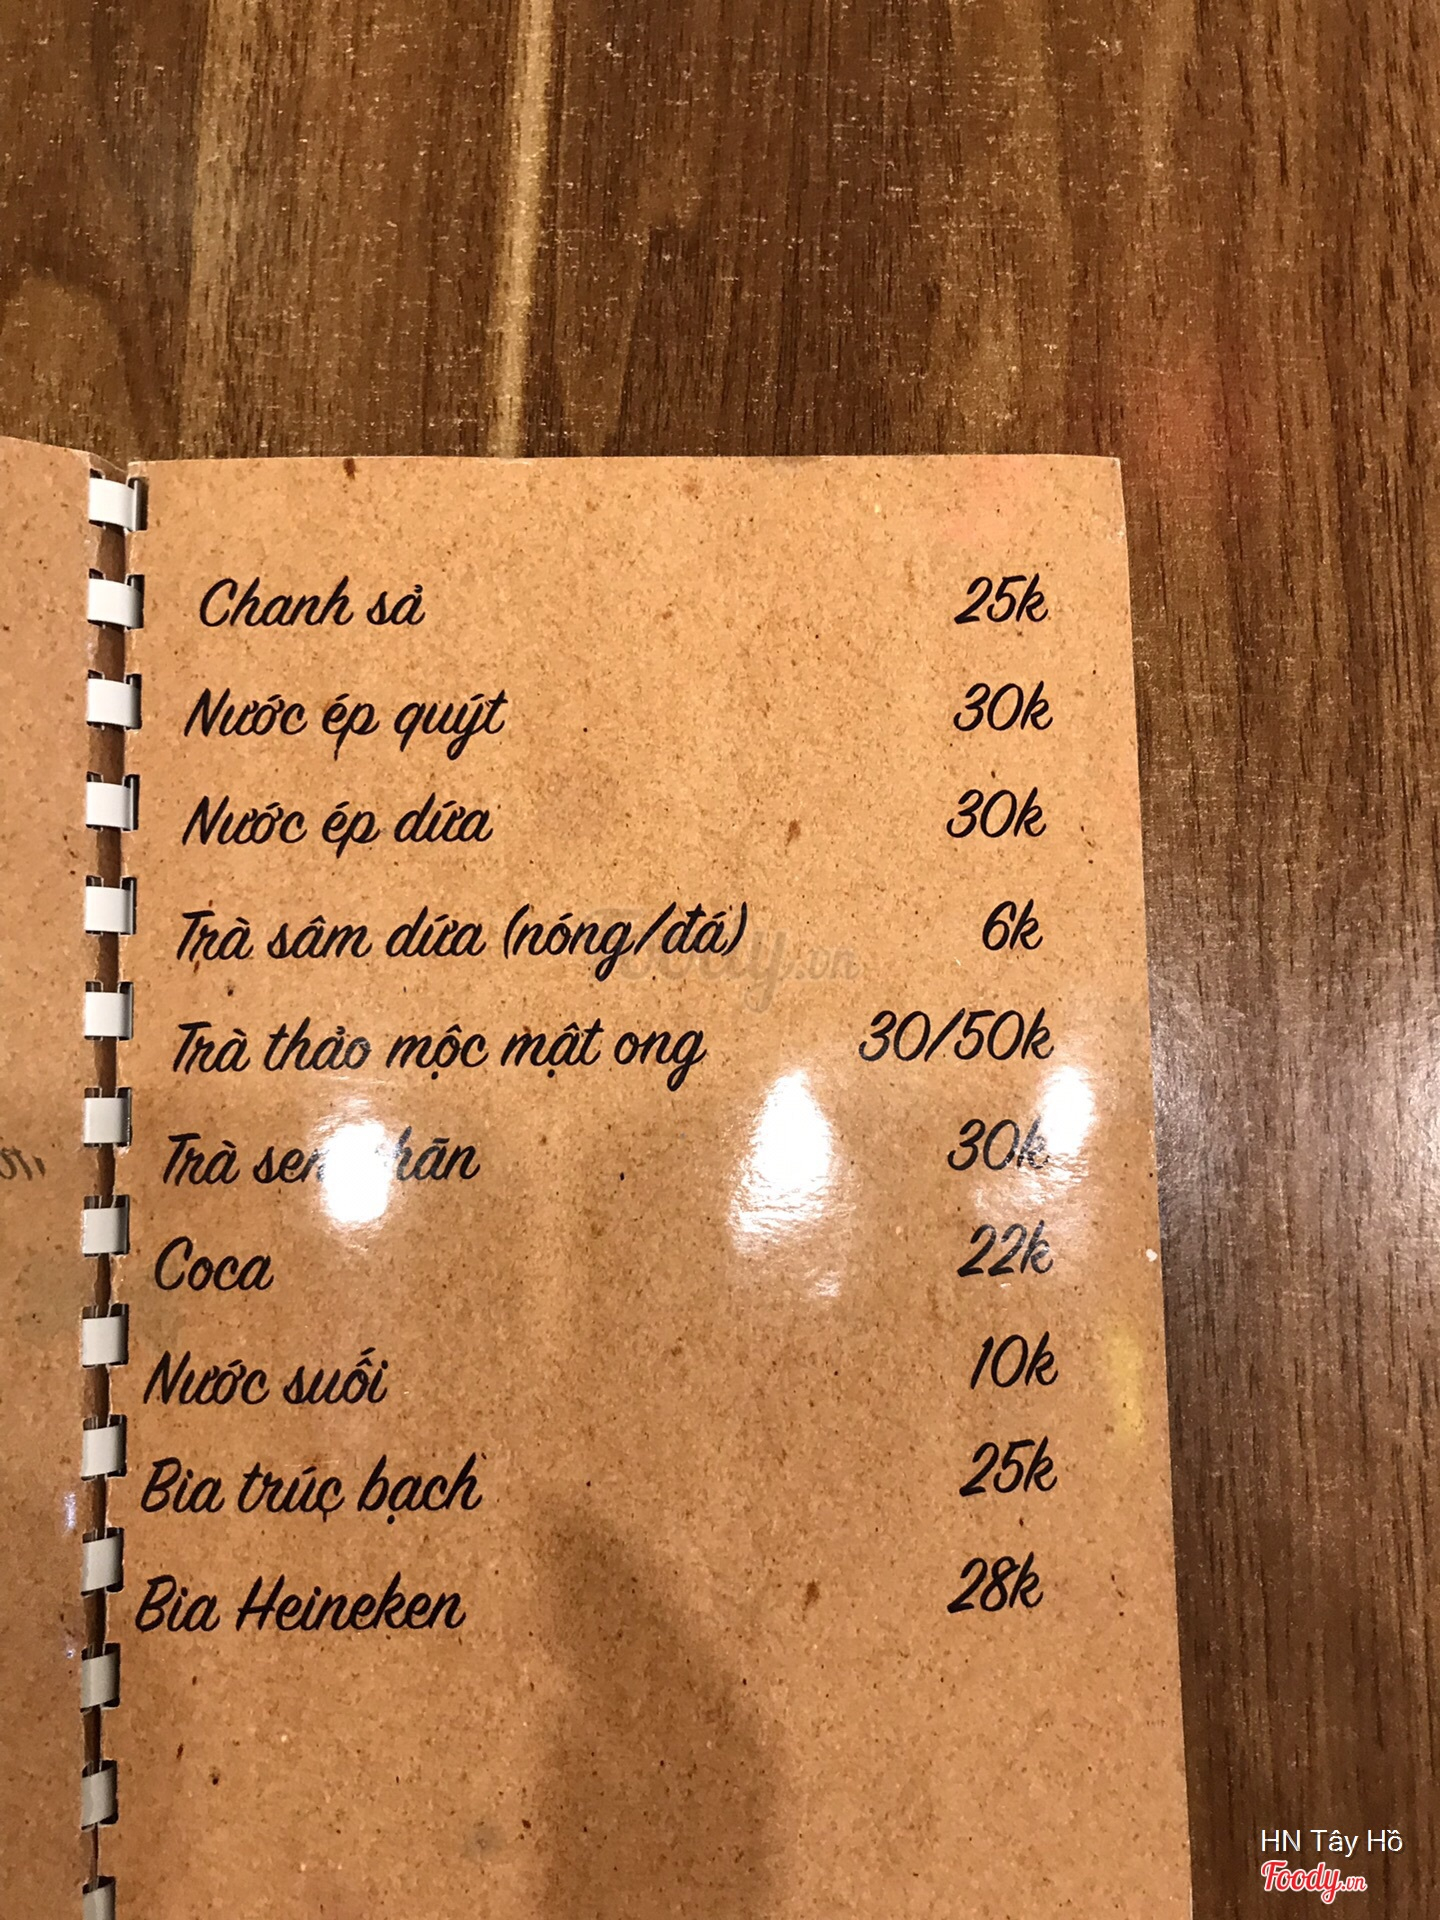 Chanh sả 25k
Nước ép quýt 30k
Nước ép dứa 30k
Trà sâm dứa (nóng/đá) 6k
Foody.vn
Trà thảo mộc mật ong 30/50k
Trà sen 30k
Coca 22k
Nước suối 10k
Bia trúc bạch 25k
Bia Heineken 28k
HN Tây Hồ
Foody.vn